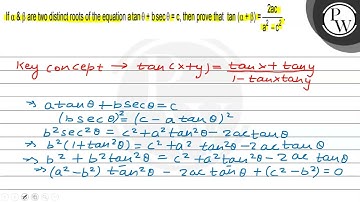 If α & β are two distinct roots of the equation a tan θ + b sec θ = c, then prove that tan (α + β) = 2ac / (a² − c²).
Key concept → tan(x+y) = (tanx + tany) / (1 − tanx tany)
→ a tanθ + b secθ = c
(b secθ)² = (c − a tanθ)²
b² sec²θ = c² + a² tan²θ − 2ac tanθ
→ b² (1 + tan²θ) = c² + a² tan²θ − 2ac tanθ
→ b² + b² tan²θ = c² + a² tan²θ − 2ac tanθ
→ (a² − b²) tan²θ − 2ac tanθ + (c² − b²) = 0